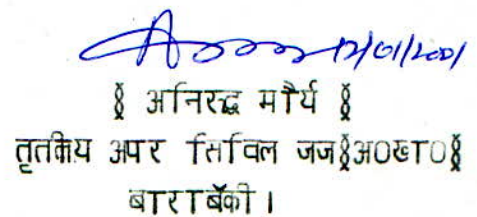 12/01/2001
§ अनिरुद्ध मौर्य §
तृतीय अपर सिविल जज§अ०ख०§
बाराबॅकी ।